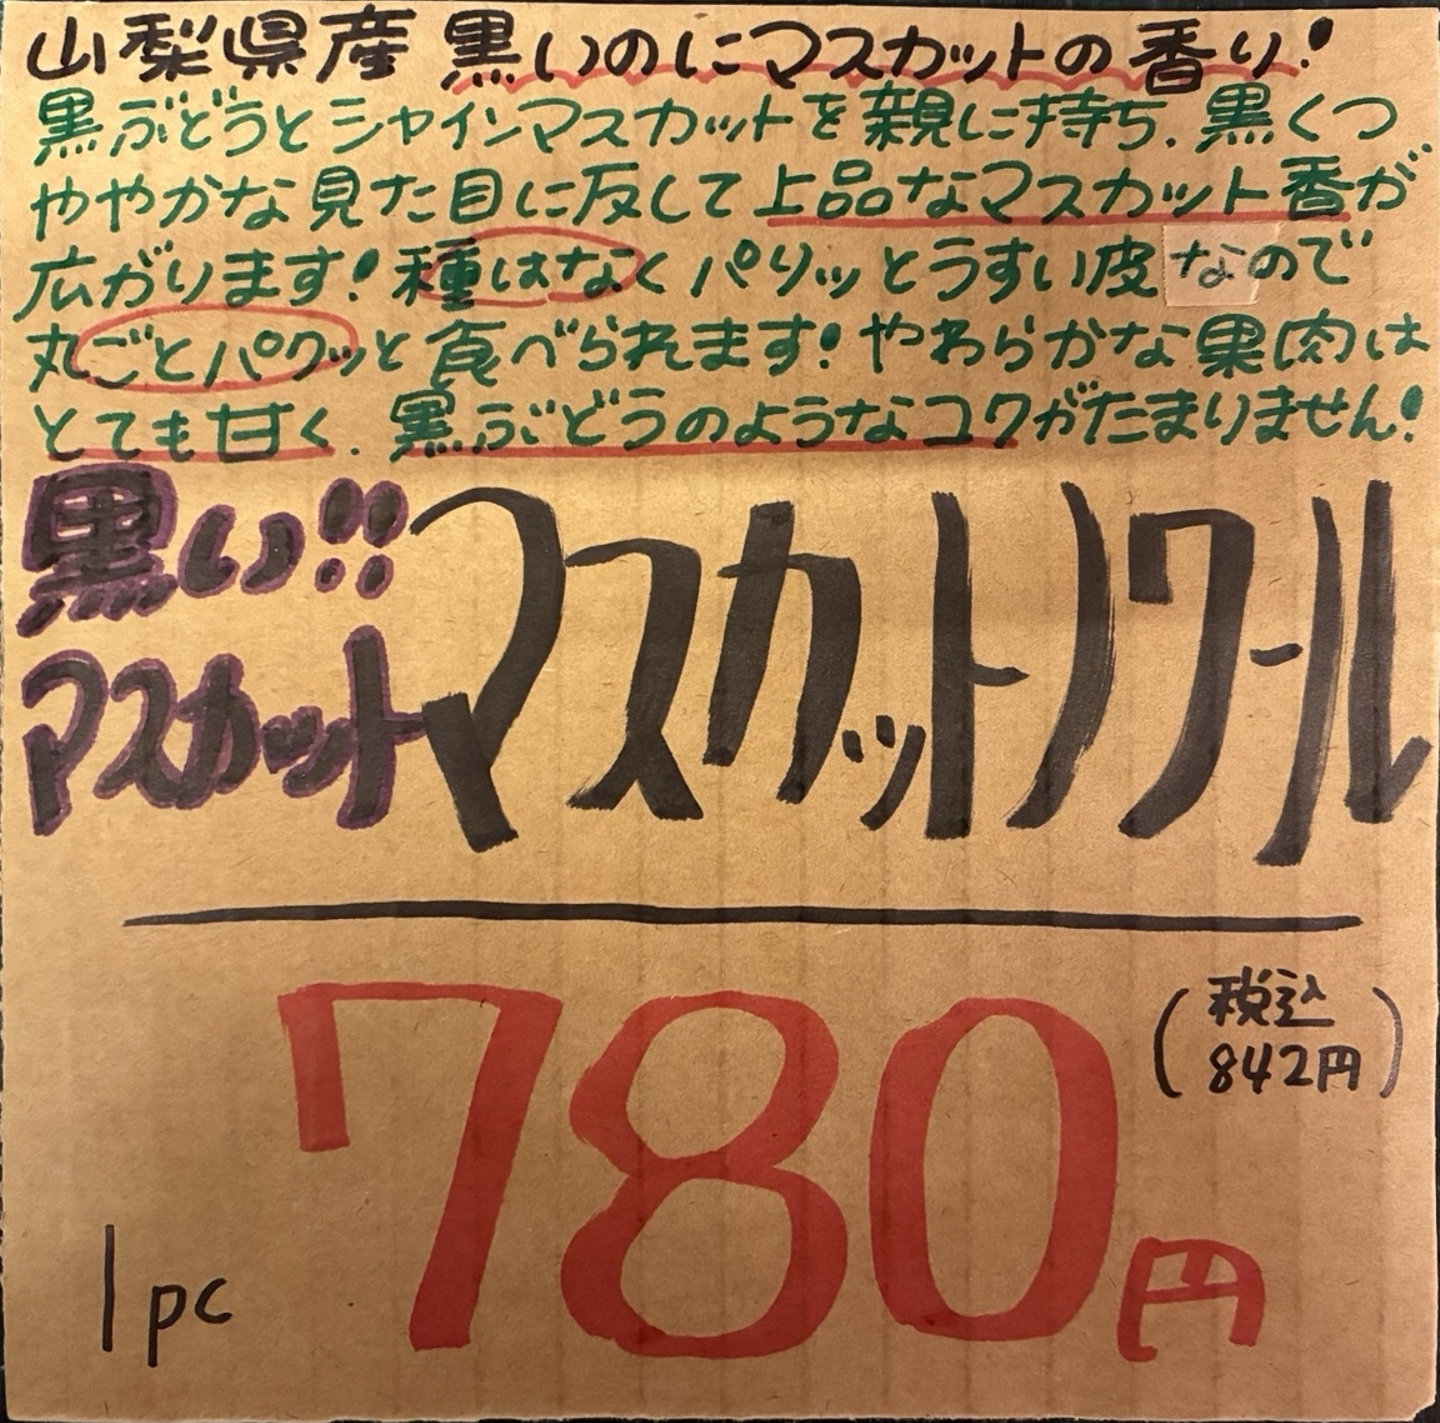 山梨県産 黒いのにマスカットの香り!
黒ぶどうとシャインマスカットを親に持ち、黒くつ
ややかな見た目に反して上品なマスカット香が
広がります!種はなくパリッとうすい皮なので
丸ごとパクッと食べられます!やわらかな果肉は
とても甘く、黒ぶどうのようなコクがたまりません!
黒い!!
マスカット
マスカットノワール
(税込
842円)
780円
1pc